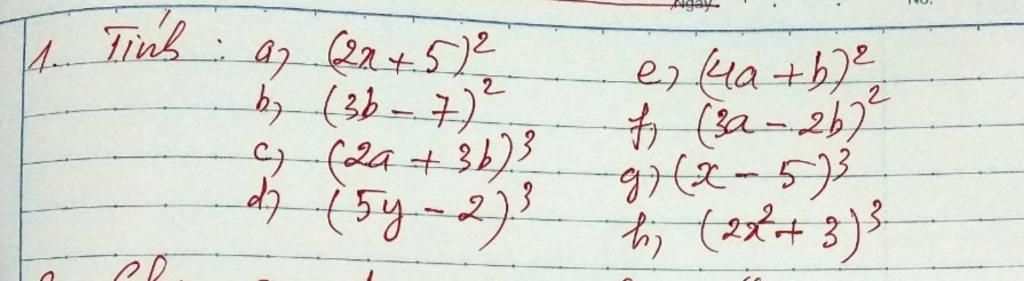 Ngày
No.
1. Tính : a) (2x + 5)²
b) (3b - 7)²
c) (2a + 3b)³
d) (5y - 2)³
e) (4a + b)²
f) (3a - 2b)²
g) (x - 5)³
h) (2x² + 3)³